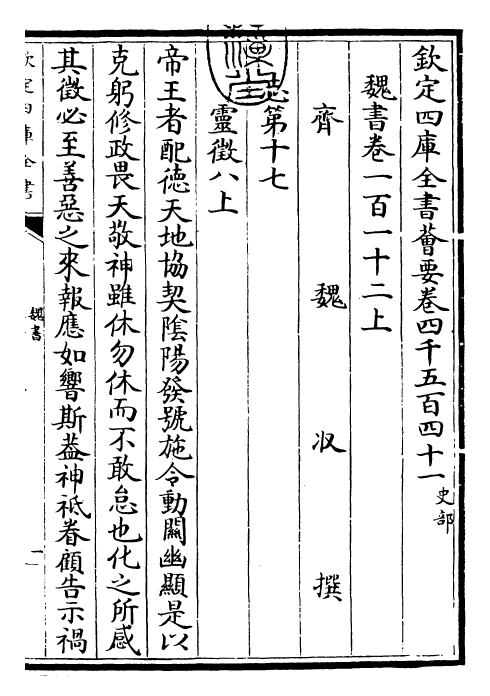 欽定四庫全書薈要卷四千五百四十一史部
魏書卷一百一十二上
齊魏收撰
志第十七
靈徵八上
帝王者配德天地協契陰陽發號施令動關幽顯是以
克躬修政畏天敬神雖休勿休而不敢怠也化之所感
其徵必至善惡之來報應如響斯葢神祗眷顧告示禍
欽定四庫全書
魏書
一